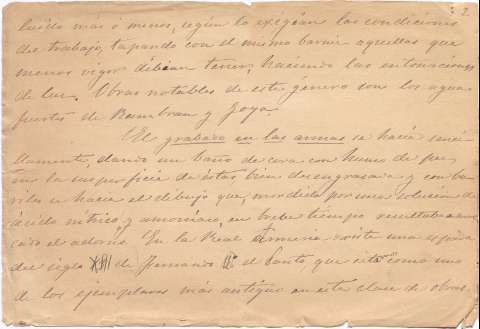 2.
luido más ó menos, según lo exigían las condiciones
del trabajo, tapando con el mismo barniz aquellas que
menos vigor debían tener, haciendo las entonaciones
de luz. Obras notables de este género son las agua
fuertes de Rembran y Goya.
El grabado en las armas se hacía senci
llamente, dando un baño de cera con humo de pez
en la superficie de estas bien desengrasada y con bu
riles se hacía el dibujo que, mordido por una solución de
ácido nítrico y amoníaco, en breve tiempo resultaba
cado el adorno. En la Real Armería existe una espada
del siglo XIII de Fernando el Santo que está como uno
de los ejemplares más antiguos en esta clase de obras.